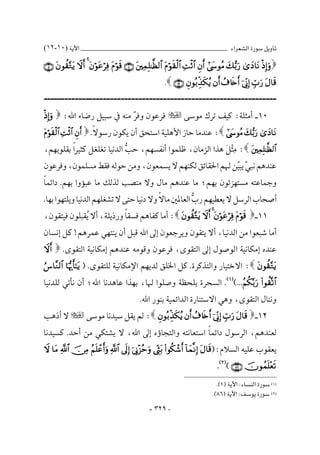 تأويل سورة الشعراء الآية (١٠-١٢)
﴿ وَإِذْ نَادَىٰ رَبُّكَ مُوسَىٰٓ أَنِ ٱئْتِ ٱلْقَوْمَ ٱلظَّٰلِمِينَ ۝ قَوْمَ فِرْعَوْنَ ۚ أَلَا يَتَّقُونَ ۝
قَالَ رَبِّ إِنِّىٓ أَخَافُ أَن يُكَذِّبُونِ ﴾.
١٠ـ أمثلة: كيف ترك موسى فرعون وفرّ منه في سبيل رضاء الله: ﴿ وَإِذْ
نَادَىٰ رَبُّكَ مُوسَىٰٓ ﴾: عندما حاز الأهلية استحق أن يكون رسولاً. ﴿ أَنِ ٱئْتِ ٱلْقَوْمَ
ٱلظَّٰلِمِينَ ﴾: مِثْلَ هذا الزمان، ظلموا أنفسهم، حبُّ الدنيا تغلغل كثيراً بقلوبهم،
عندهم نبيّ يبيّن لهم الحقائق لكنهم لا يسمعون، ومن حوله فقط مسلمون، وفرعون
وجماعته مستهزئون بهم؛ ما عندهم مال ولا منصب لذلك ما عبؤوا بهم. دائماً
أصحاب الرسل لا يعطيهم ربُّ العالمين مالاً ولا دنيا حتى لا تشغلهم الدنيا ويلتهوا بها.
١١ـ ﴿ قَوْمَ فِرْعَوْنَ ۚ أَلَا يَتَّقُونَ ﴾: أما كفاهم فسقاً ورذيلة، ألا يُقبلون فيتقون،
أما شبعوا من الدنيا، ألا يتقون ويرجعون إلى الله قبل أن ينتهي عمرهم! كل إنسان
عنده إمكانية الوصول إلى التقوى، فرعون وقومه عندهم إمكانية التقوى. ﴿ أَلَا
يَتَّقُونَ ﴾: الاختيار والتذكرة. كل الخلق لديهم الإمكانية للتقوى. ﴿ يَٰٓأَيُّهَا ٱلنَّاسُ
ٱتَّقُوا۟ رَبَّكُمُ...﴾(١). السحرة بلحظة وصلوا لها، بهذا عاهدنا الله؛ أن نأتي للدنيا
وننال التقوى، وهي الاستنارة الدائمية بنور الله.
١٢ـ ﴿ قَالَ رَبِّ إِنِّىٓ أَخَافُ أَن يُكَذِّبُونِ ﴾: لم يقل سيدنا موسى لا أذهب
لعندهم، الرسول دائماً استعانته والتجاؤه إلى الله، لا يشتكي من أحد. كسيدنا
يعقوب عليه السلام: ﴿قَالَ إِنَّمَآ أَشْكُوا۟ بَثِّى وَحُزْنِىٓ إِلَى ٱللَّهِ وَأَعْلَمُ مِنَ ٱللَّهِ مَا لَا
تَعْلَمُونَ ۝﴾(٢).
(١) سورة النساء: الآية (١).
(٢) سورة يوسف: الآية (٨٦).
- ٣٢٩ -